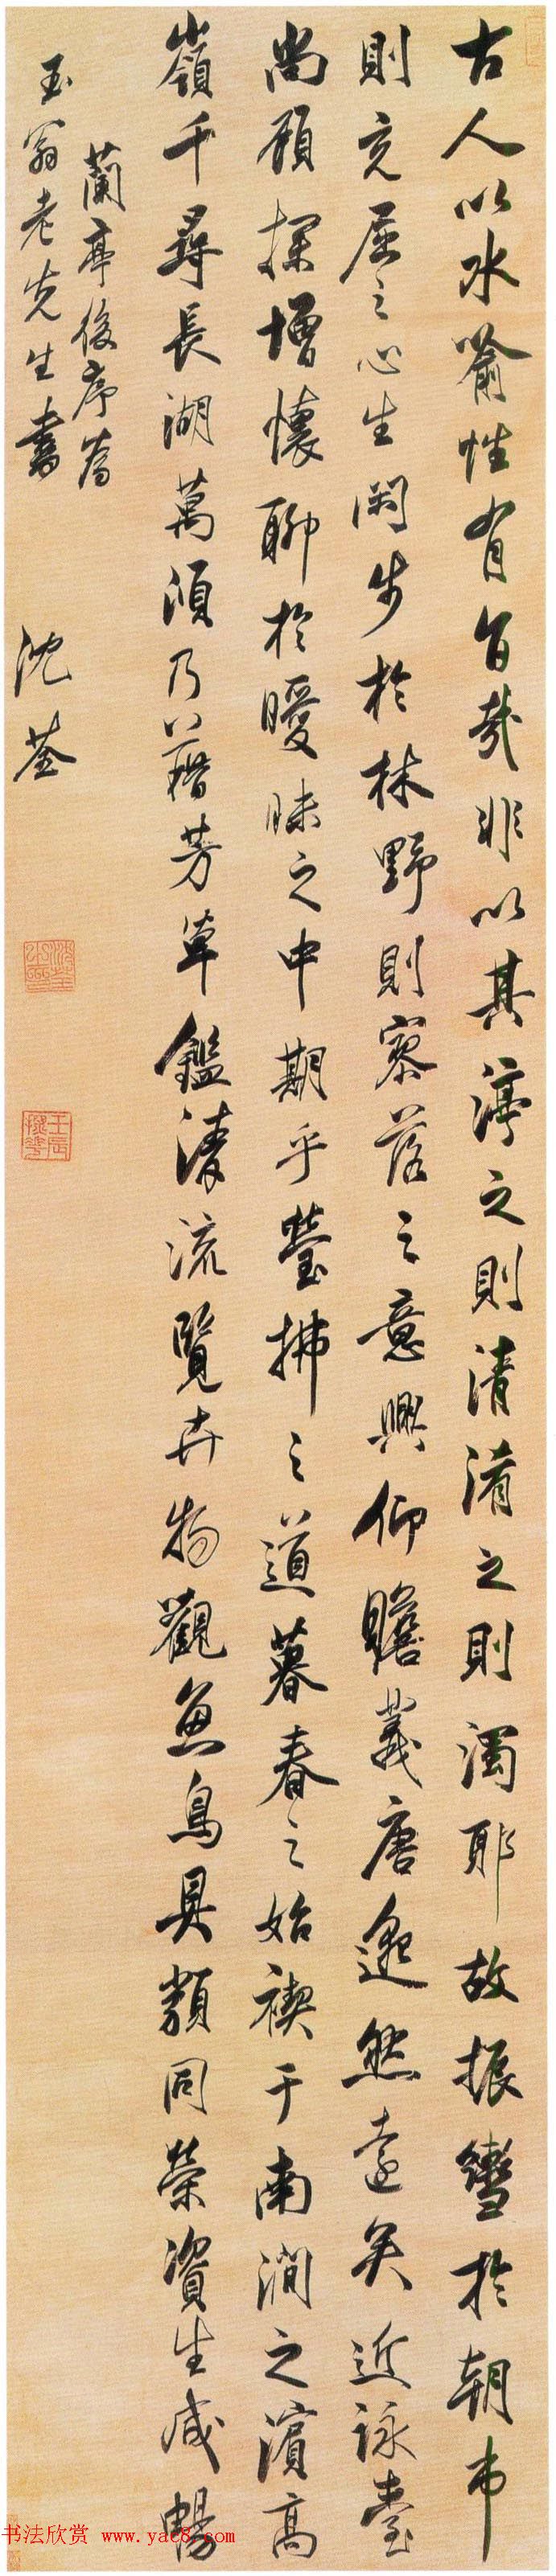 古人以水喻性有旨哉非以其渟之則清淆之則濁耶故振轡於朝市
則充屈之心生闲步於林野則寥落之意興仰瞻羲唐邈然遠矣近詠臺
尚顧探增懷聊於曖昧之中期乎瑩拂之道暮春之始禊于南澗之濱高
嶺千尋長湖萬頃乃藉芳草鑑清流覽卉物觀魚鳥具類同榮資生咸暢
蘭亭後序為
玉翁老先生書
沈荃
书法欣赏 www.yac8.com